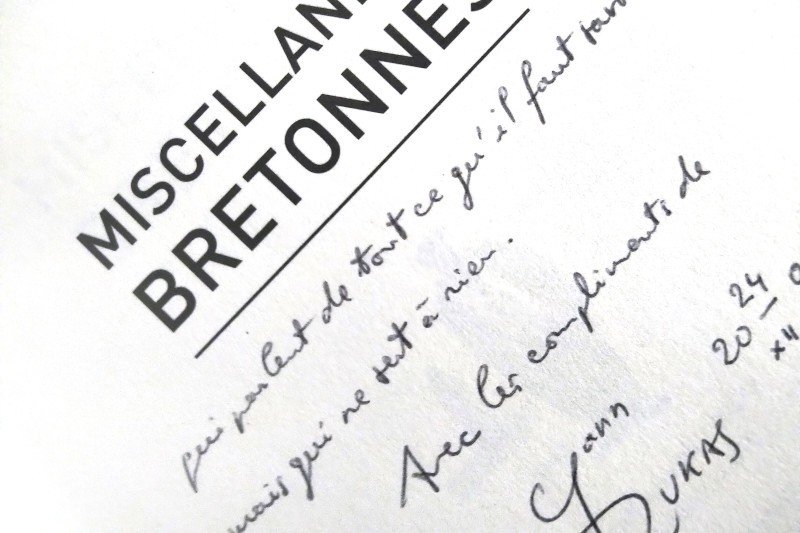 MISCELLANÉES
BRETONNES
qui parlent de tout ce qu'il faut savoir
mais qui ne sert à rien.
Avec les compliments de
Yann LUKAS
24
20
XII